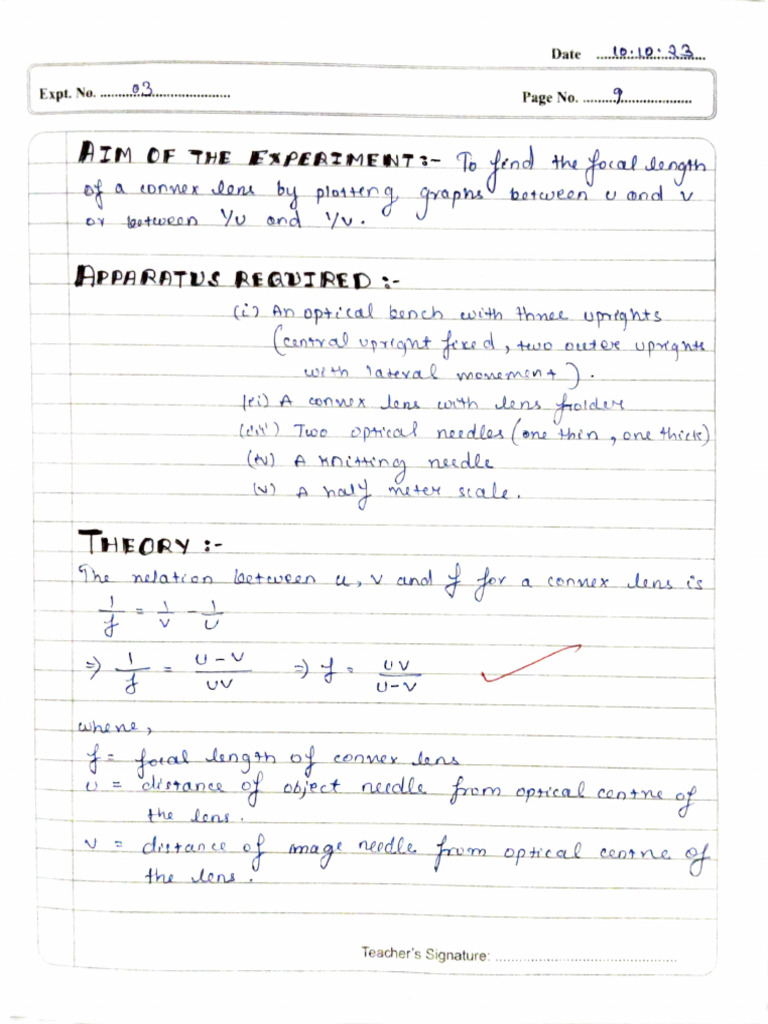 Date 10:10:23
Expt. No. 03
Page No. 9
AIM OF THE EXPERIMENT:- To find the focal length
of a convex lens by plotting graphs between u and v
or between 1/u and 1/v.
APPARATUS REQUIRED:-
(i) An optical bench with three uprights
(central upright fixed, two outer uprights
with lateral movement).
(ii) A convex lens with lens holder
(iii) Two optical needles (one thin, one thick)
(iv) A knitting needle
(v) A half meter scale.
THEORY:-
The relation between u, v and f for a convex lens is
1/f = 1/v - 1/u
=> 1/f = u-v/uv => f = uv/u-v
where,
f = focal length of convex lens
u = distance of object needle from optical centre of
the lens.
v = distance of image needle from optical centre of
the lens.
Teacher's Signature: